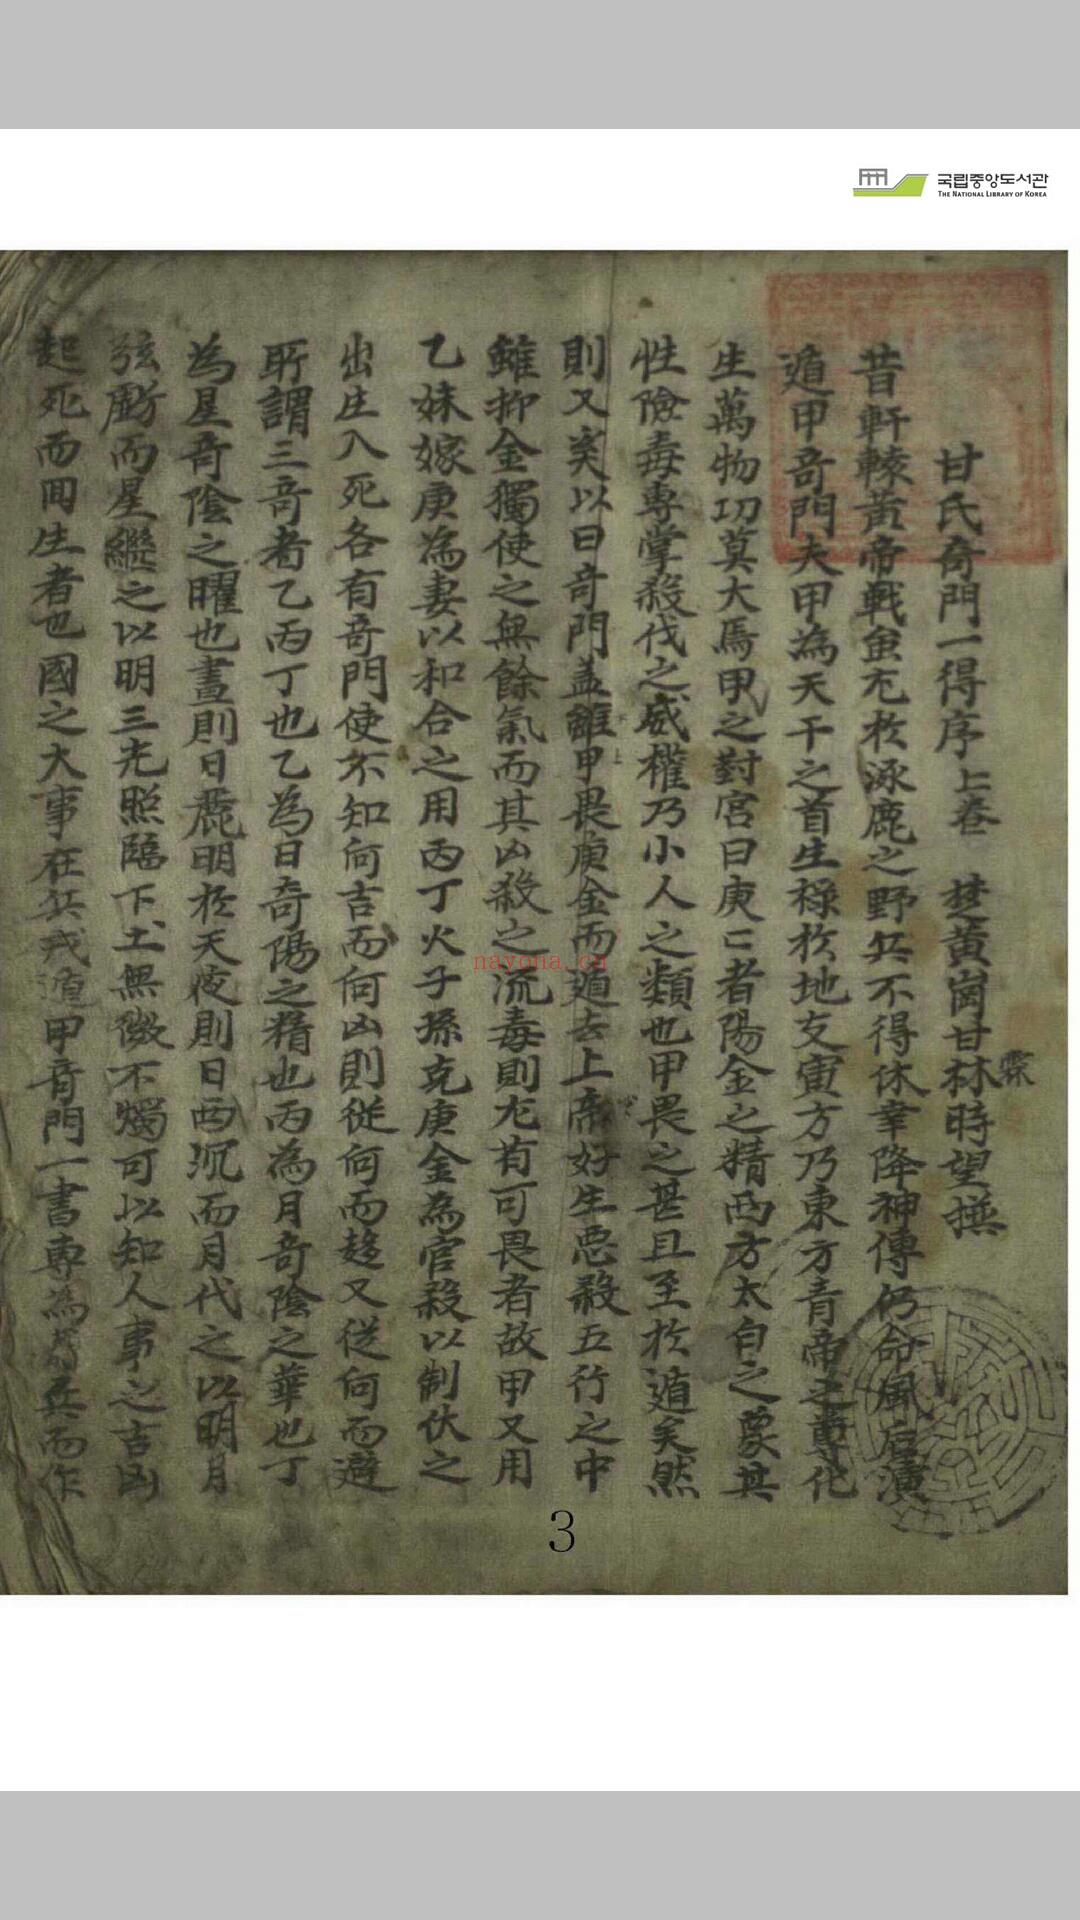 국립중앙도서관
THE NATIONAL LIBRARY OF KOREA
甘氏奇門一得序上卷 楚黃崗甘霖時望撰
昔軒轅黃帝戰蚩尤於涿鹿之野兵不得休幸降神傳仍命風后演
遁甲奇門夫甲為天干之首生祿於地支寅方乃東方青帝之尊化
生萬物功莫大焉甲之對宮曰庚亡者陽金之精西方太白之象其
性險毒專掌殺伐之威權乃小人之類也甲畏之甚且至於遁矣然
則又奚以曰奇門盖雖甲畏庚金而遁去上帝好生惡殺五行之中
雖抑金獨使之無餘氣而其凶殺之流毒則尤有可畏者故甲又用
乙妹嫁庚為妻以和合之用丙丁火子孫克庚金為官殺以制伏之
出庄入死各有奇門使不知何吉而何凶則從何而趍又從何而避
所謂三奇者乙丙丁也乙為日奇陽之精也丙為月奇陰之華也丁
為星奇陰之曜也晝則日麗明於天夜則日西沉而月代之以明月
弦虧而星繼之以明三光照臨下土無微不燭可以知人事之吉凶
起死而回生者也國之大事在兵戎遁甲奇門一書專為兵而作
nayona.cn
3